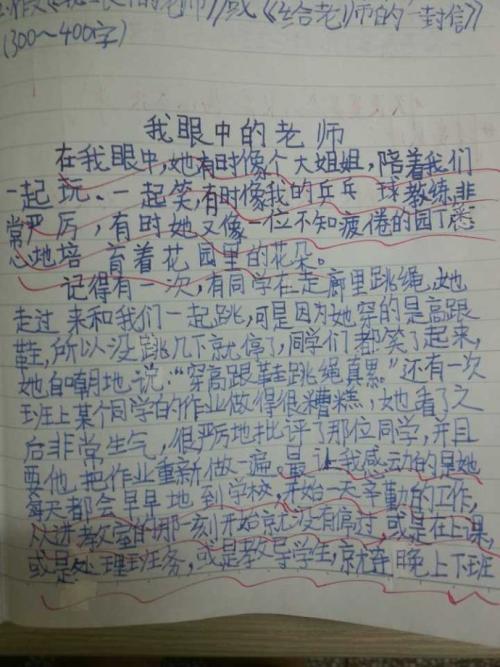 老师》或《给老师的一封信》
(300~400字)
我眼中的老师
在我眼中,她有时像个大姐姐,陪着我们
一起玩、一起笑,有时像我的乒乓球教练非
常严厉,有时她又像一位不知疲倦的园丁悉
心地培育着花园里的花朵。
记得有一次,有同学在走廊里跳绳,她
走过来和我们一起跳,可是因为她穿的是高跟
鞋,所以没跳几下就停了,同学们都笑了起来,
她自嘲地说:“穿高跟鞋跳绳真累。”还有一次
班上某个同学的作业做得很糟糕,她看了之
后非常生气,很严厉地批评了那位同学,并且
要他把作业重新做一遍。最让我感动的是她
每天都会早早地到学校,开始一天辛勤的工作,
从进教室的那一刻开始就没有停过,或是在上课,
或是处理班务,或是教导学生,就连晚上下班